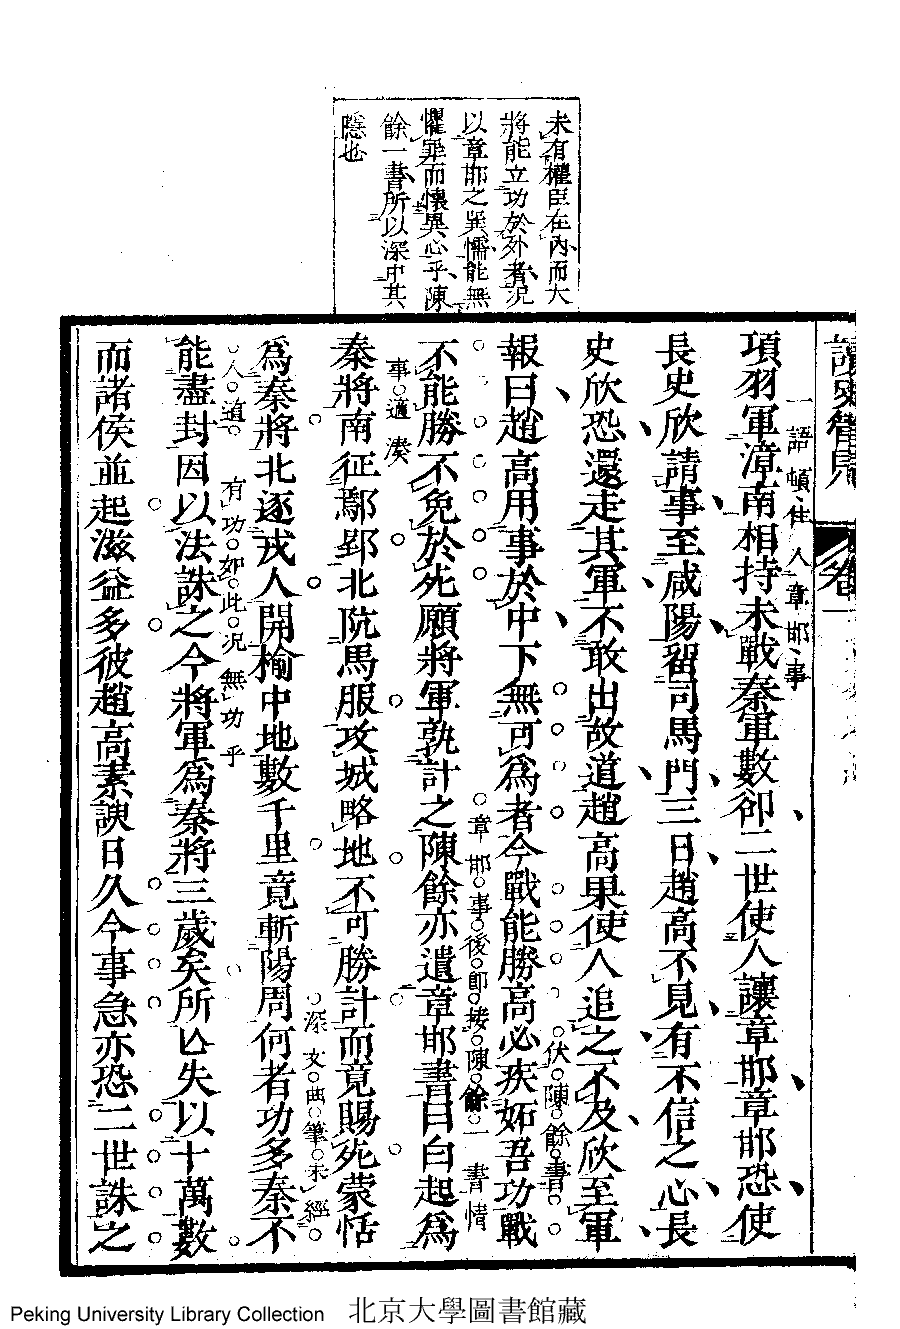 未有權臣在內而大
將能立功於外者況
以章邯之巽懦能無
懼罪而懷異心乎陳
餘一書所以深中其
隱也
項羽軍漳南相持未戰秦軍數卻二世使人讓章邯章邯恐使
一語頓住入章邯事
長史欣請事至咸陽留司馬門三日趙高不見有不信之心長
史欣恐還走其軍不敢出故道趙高果使人追之不及欣至軍
伏陳餘書
報曰趙高用事於中下無可爲者今戰能勝高必疾妬吾功戰
章邯事後卽接陳餘一書情
事遒湊
不能勝不免於死願將軍孰計之陳餘亦遺章邯書曰白起爲
秦將南征鄢郢北阬馬服攻城略地不可勝計而竟賜死蒙恬
深文曲筆未經
人道
爲秦將北逐戎人開榆中地數千里竟斬陽周何者功多秦不
有功如此況無功乎
能盡封因以法誅之今將軍爲秦將三歲矣所亾失以十萬數
而諸侯並起滋益多彼趙高素諛日久今事急亦恐二世誅之
卷一
Peking University Library Collection 北京大學圖書館藏